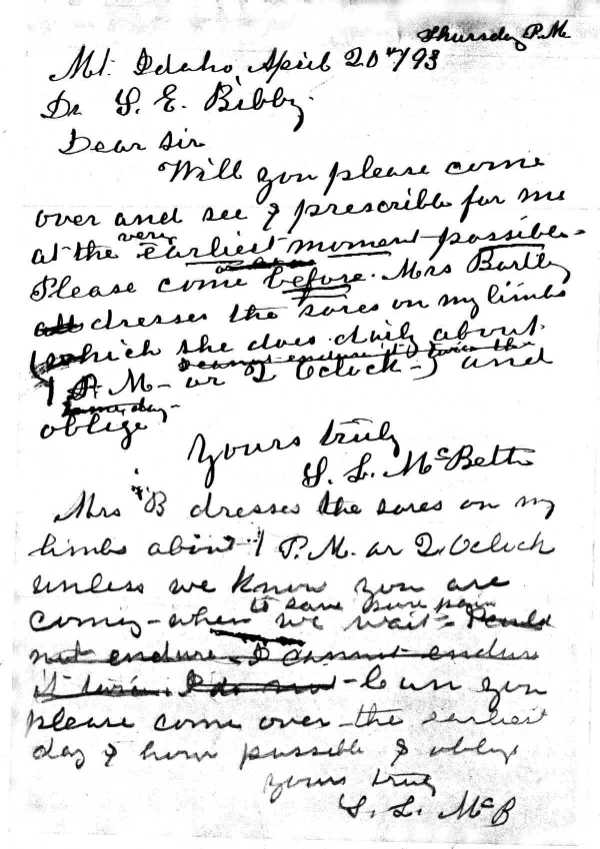 Thursday P.M.
Mt. Idaho, April 20th/93
Dr S. E. Bibby.
Dear Sir
Will you please come
over and see & prescribe for me
at the very earliest moment possible-
Please come before. Mrs Bartley
all dresses the sores on my limbs
(which she does daily about
I cannot endure it twice the
1 P.M- or 2 Oclock-) and
same day-
oblige
Yours truly
S. L. McBeth
Mrs B dresses the sores on my
limbs about 1 P.M. or 2. Oclock
unless we know you are
to save sore pain
coming- when we wait- I could
not endure I cannot endure
it twice. I do not - Can you
please come over- the earliest
day & hour possible & oblige
yours truly
S. L. McB